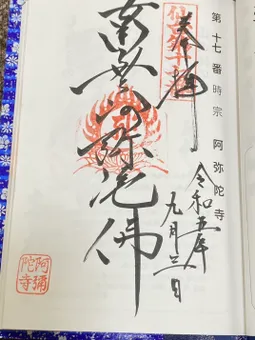 第十七番 時宗 阿弥陀寺
奉拝
令和五年
九月三日
南無阿弥陀佛
阿彌
陀寺